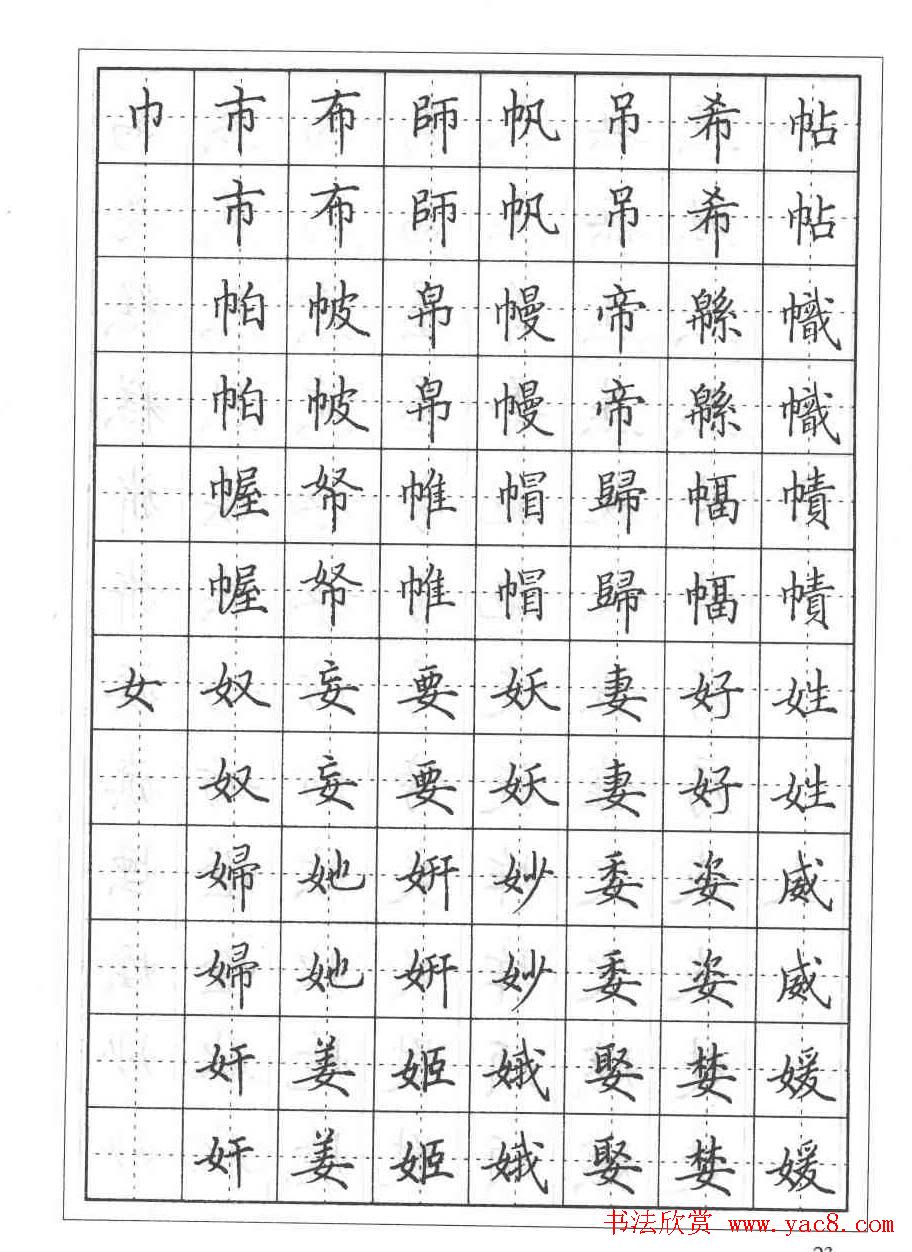 巾市布師帆吊希帖
市布師帆吊希帖
帕帔帛幔帝緜幟
帕帔帛幔帝緜幟
幄帑帷帽歸幅幘
幄帑帷帽歸幅幘
女奴妄要妖妻好姓
奴妄要妖妻好姓
婦她妍妙委姿威
婦她妍妙委姿威
奸姜姬娥娶婪媛
奸姜姬娥娶婪媛
书法欣赏 www.yac8.com